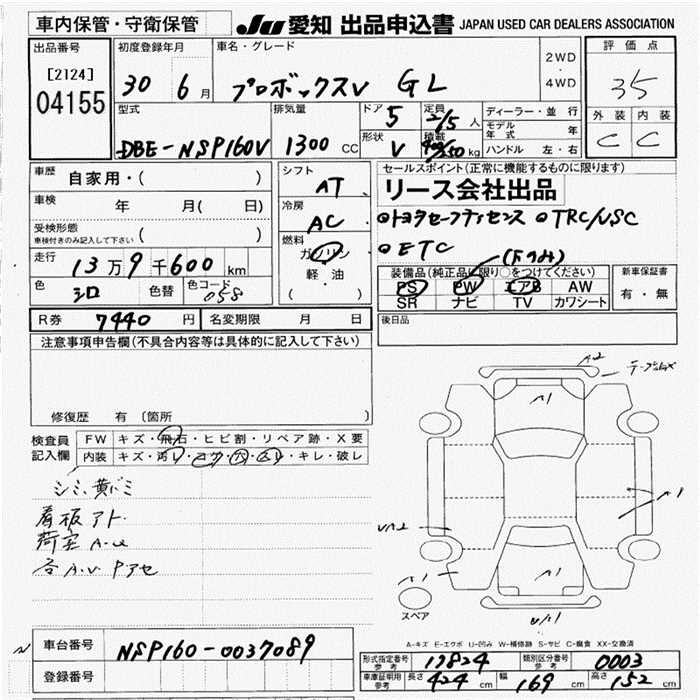 車内保管・守衛保管 JU 愛知 出品申込書 JAPAN USED CAR DEALERS ASSOCIATION
出品番号 初度登録年月 車名・グレード 2WD ・ 4WD 評価点
[2124] 04155 30 年 6 月 プロボックスV GL 3.5
型式 排気量 ドア 5 定員 2/5 人 ディーラー・並 行 外装 内装
DBE-NSP160V 1300 CC 形状 V 積載 400/250 kg モデル年式 年 C C
ハンドル 左・右
車歴 自家用・( ) シフト AT セールスポイント(正常に機能するものに限ります)
車検 年 月( 日) 冷房 AC リース会社出品
受検形態 車検付きのみ記入して下さい ( ) ◎トヨタセーフティセンス ◎TRC/VSC
走行 13万9千600km 燃料 ガソリン 軽・油 ( ) ◎ETC (Fのみ)
色 シロ 色替 色コード 058 装備品(純正品に限り○をつけてください) 新車保証書
PS PW エアB AW 有・無
SR ナビ TV カワシート
R券 7440 円 名変期限 月 日 後日品
注意事項申告欄(不具合内容等は具体的に記入して下さい)
修復歴 有 〔箇所
検査員記入欄 FW キズ・飛石・ヒビ割・リペア跡・X要
内装 キズ・汚れ・コゲ・穴・スレ・キレ・破レ
シミ、黄バミ
看板アト
荷室A・U
各A.U Pアセ
A2
A1
A1
UA2
A1
A1
U/1
スペア
A-キズ E-エクボ U-凹み W-補修跡 S-サビ C-腐食 XX-交換済
車台番号 NSP160-0037089
登録番号
形式指定番号 参考 17824 類別区分番号 参考 0003
車庫証明用 参考 長さ 424 cm 幅 169 cm 高さ 152 cm